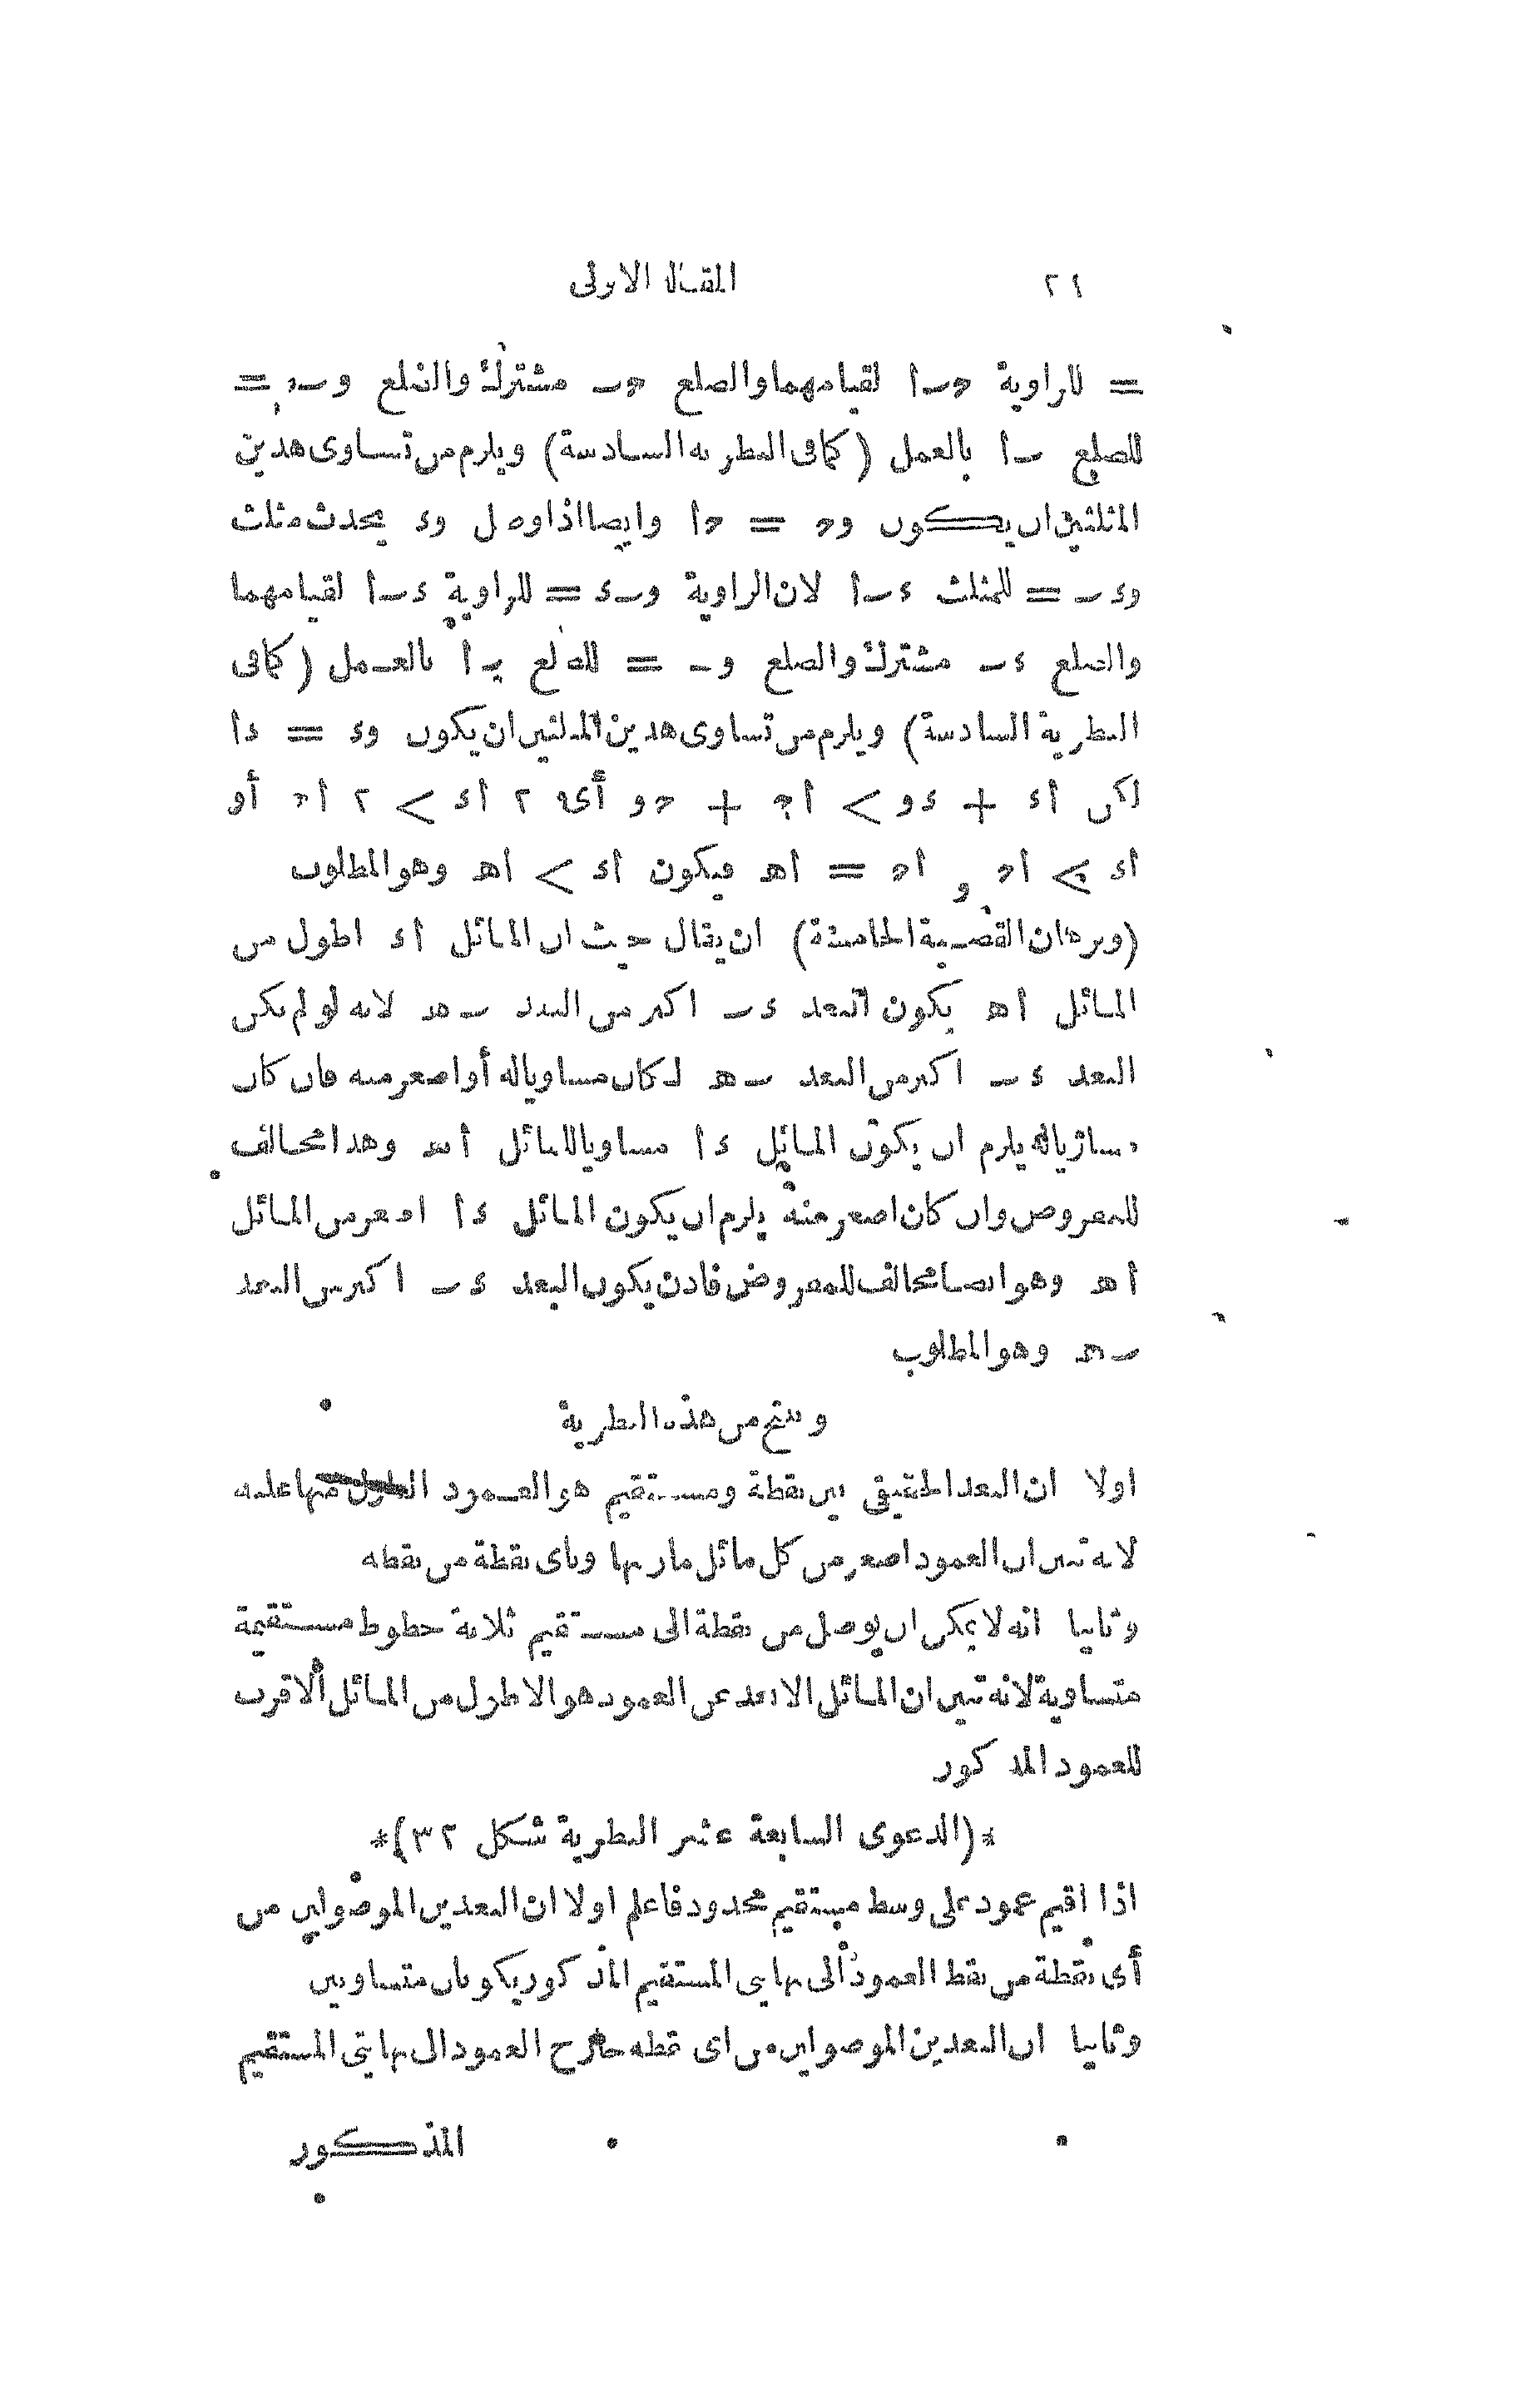 ٢٤ المقالة الاولى
= للزاوية حـ ب أ لقيامهما والضلع حـ ب مشترك والضلع و ب =
للضلع ب أ بالعمل (كما فى النظرية السادسة) ويلزم من تساوى هذين
المثلثين ان يكون و حـ = حـ أ وايضا اذا وصل و ء يحدث مثلث
و ء ب = للمثلث ء ب أ لان الزاوية و ب ء = للزاوية ء ب أ لقيامهما
والضلع ء ب مشترك والضلع و ب = للضلع ب أ بالعمل (كما فى
النظرية السادسة) ويلزم من تساوى هذين المثلثين ان يكون و ء = ء أ
لكن أ ء + ء و > أ حـ + حـ و أى ٢ أ ء > ٢ أ حـ أو
أ ء > أ حـ و أ حـ = أ هـ فيكون أ ء > أ هـ وهو المطلوب
(وبرهان القضية الخامسة) ان يقال حيث ان المائل أ ء اطول من
المائل أ هـ يكون البعد ء ب اكبر من البعد ب هـ لانه لو لم يكن
البعد ء ب اكبر من البعد ب هـ لكان مساويا له أو اصغر منه فان كان
مساويا له يلزم ان يكون المائل ء أ مساويا للمائل أ هـ وهذا مخالف
للمفروض وان كان اصغر منه يلزم ان يكون المائل ء أ اصغر من المائل
أ هـ وهو ايضا مخالف للمفروض فاذن يكون البعد ء ب اكبر من البعد
ب هـ وهو المطلوب
وينتج من هذه النظرية
اولا ان البعد الحقيقى بين نقطة ومستقيم هو العمود النازل منها عليه
لانه تبين ان العمود اصغر من كل مائل مار بها وباى نقطة من نقطه
وثانيا انه لا يمكن ان يوصل من نقطة الى مستقيم ثلاثة خطوط مستقيمة
متساوية لانه تبين ان المائل الابعد عن العمود هو الاطول من المائل الاقرب
للعمود المذكور
*(الدعوى السابعة عشر النظرية شكل ٣٢)*
اذا اقيم عمود على وسط مستقيم محدود فاعلم اولا ان البعدين الموصولين من
أى نقطة من نقط العمود الى نهايتى المستقيم المذكور يكونان متساويين
وثانيا ان البعدين الموصولين من اى نقطه خارج العمود الى نهايتى المستقيم
المذكور